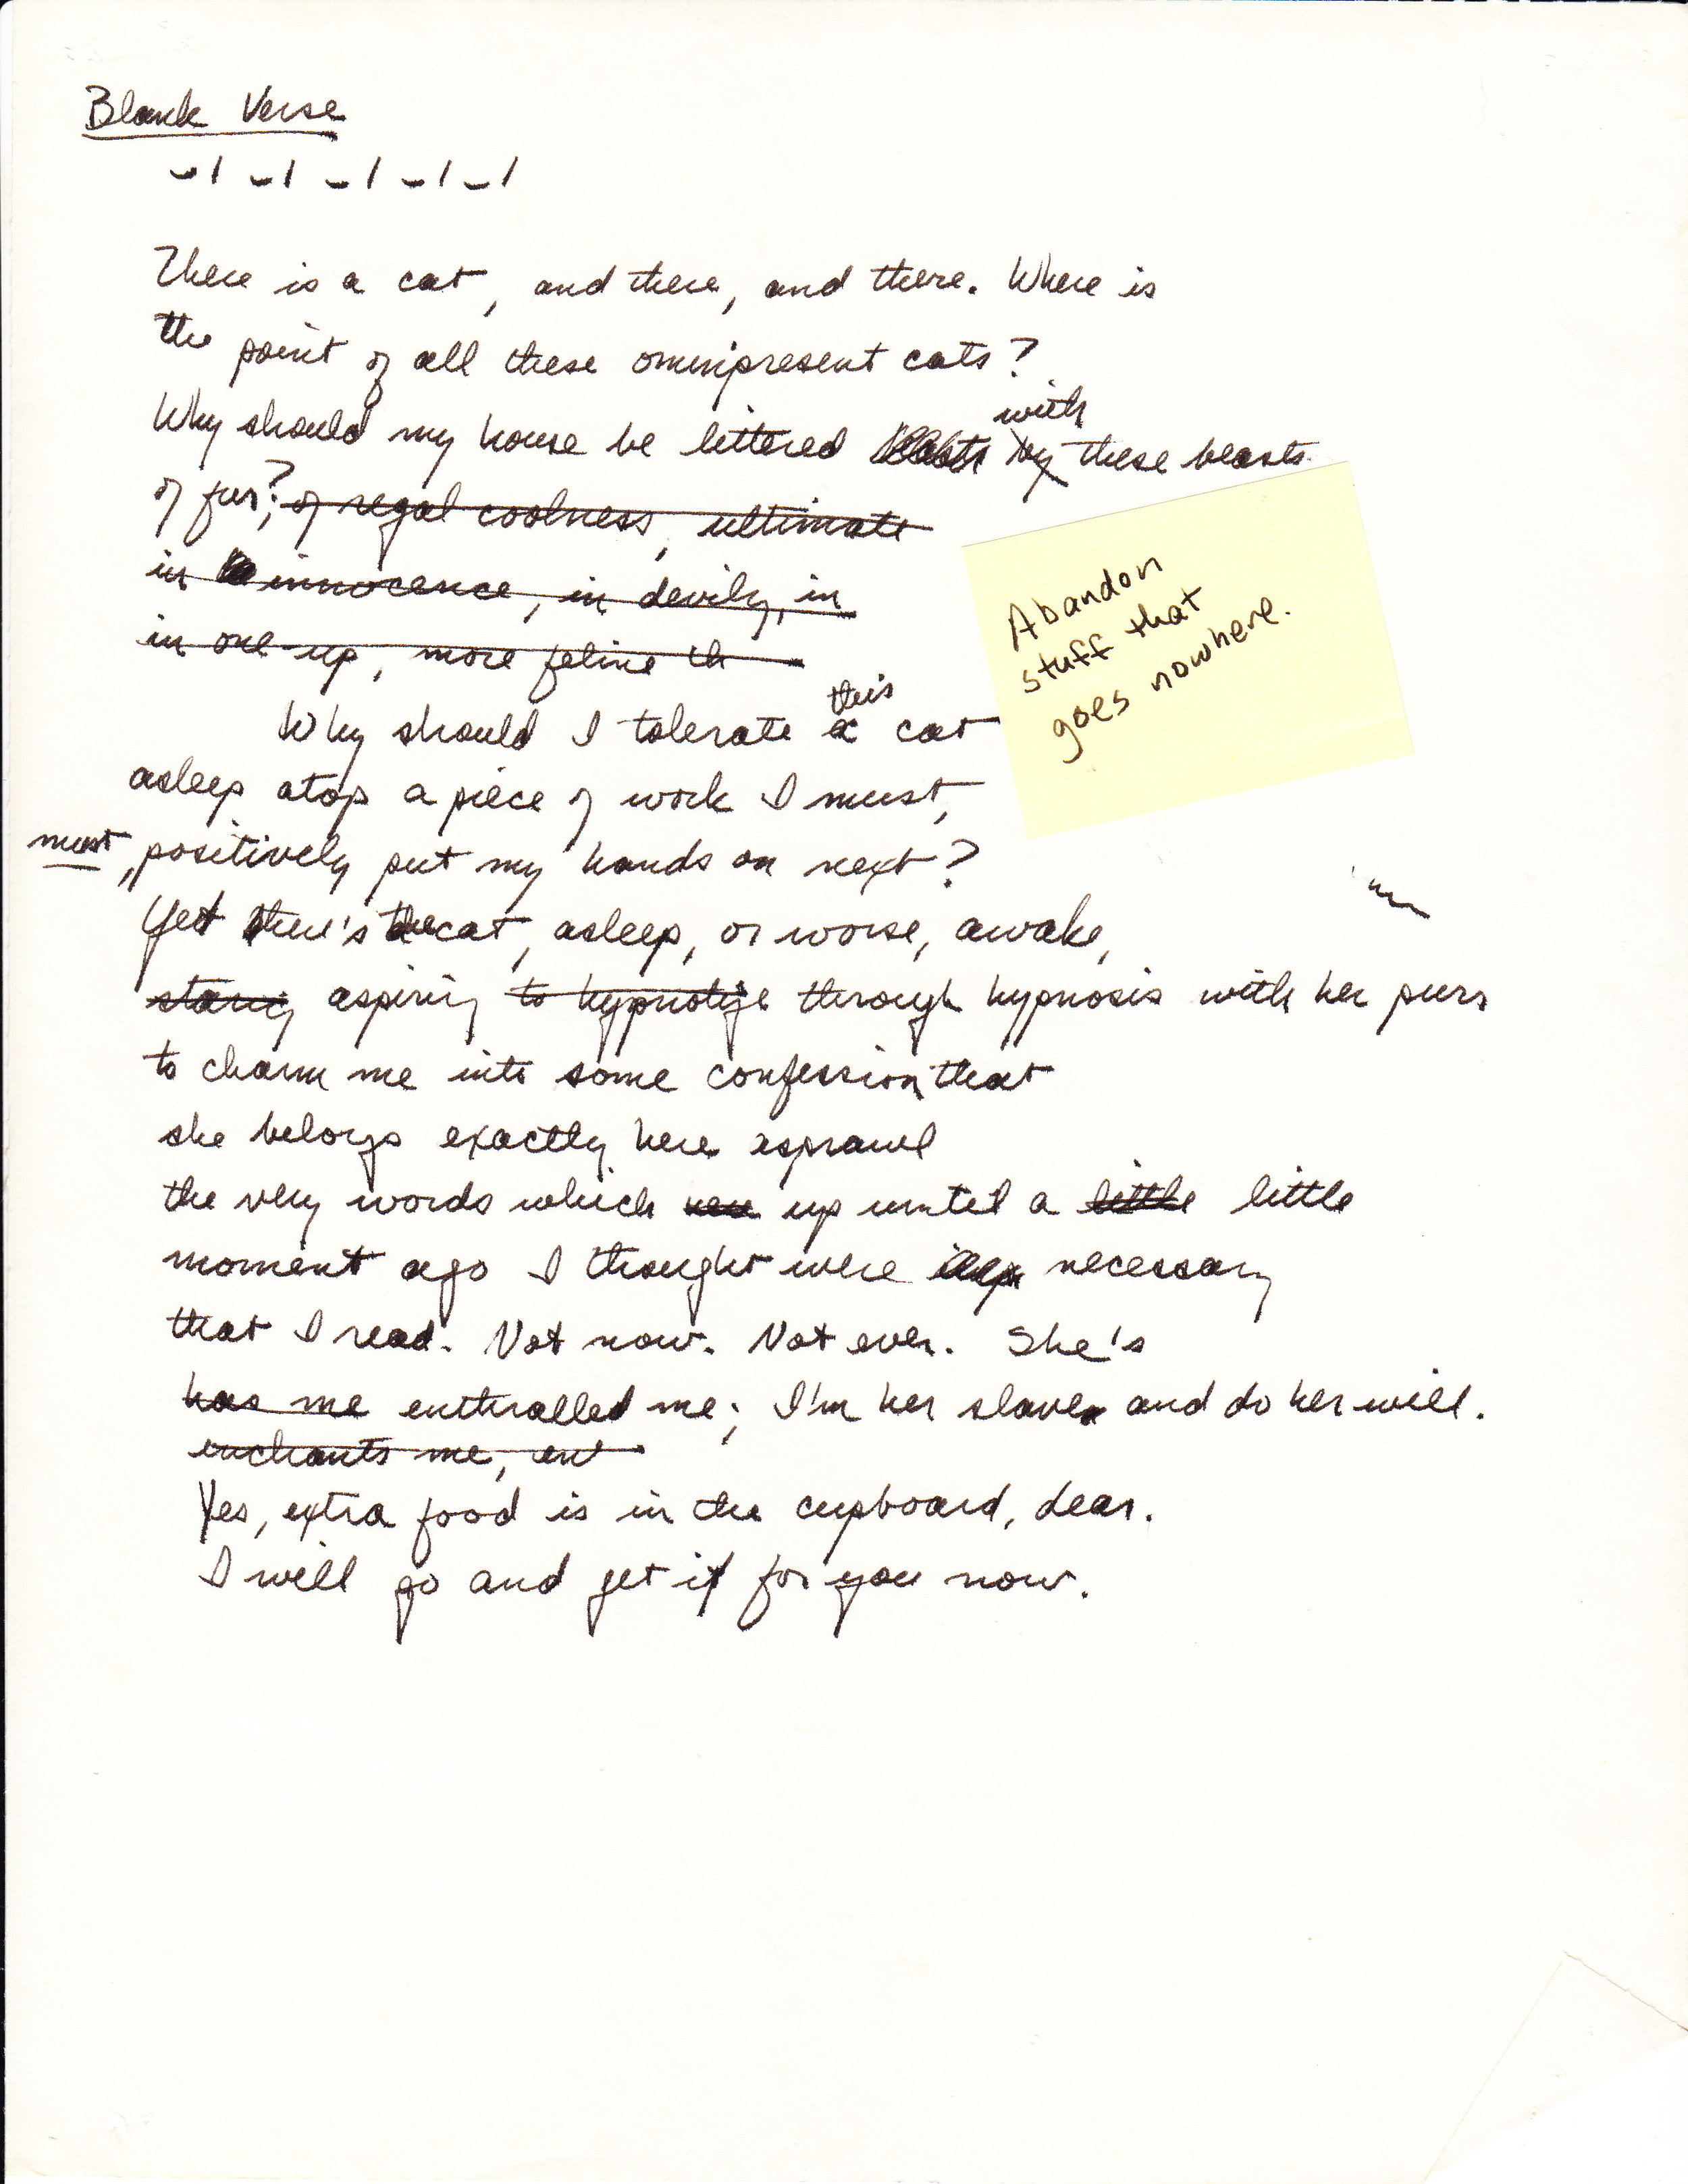 Blank Verse
There is a cat, and there, and there. Where is
the point of all these omnipresent cats?
with
Why should my house be littered by these beasts
of fur? of regal coolness, ultimate
in innocence, in devily, in
in one-up, more feline th
this
Why should I tolerate a cat
asleep atop a piece of work I must,
must, positively put my hands on next?
Yet there's the cat, asleep, or worse, awake,
staring aspiring to hypnotize through hypnosis with her purrs
to charm me into some confession that
she belongs exactly here asprawl
the very words which up until a little little
moment ago I thought were necessary
that I read. Not now. Not ever. She's
has me enthralled me; I'm her slave and do her will.
enchants me, en
Yes, extra food is in the cupboard, dear.
I will go and get it for you now.
Abandon
stuff that
goes nowhere.